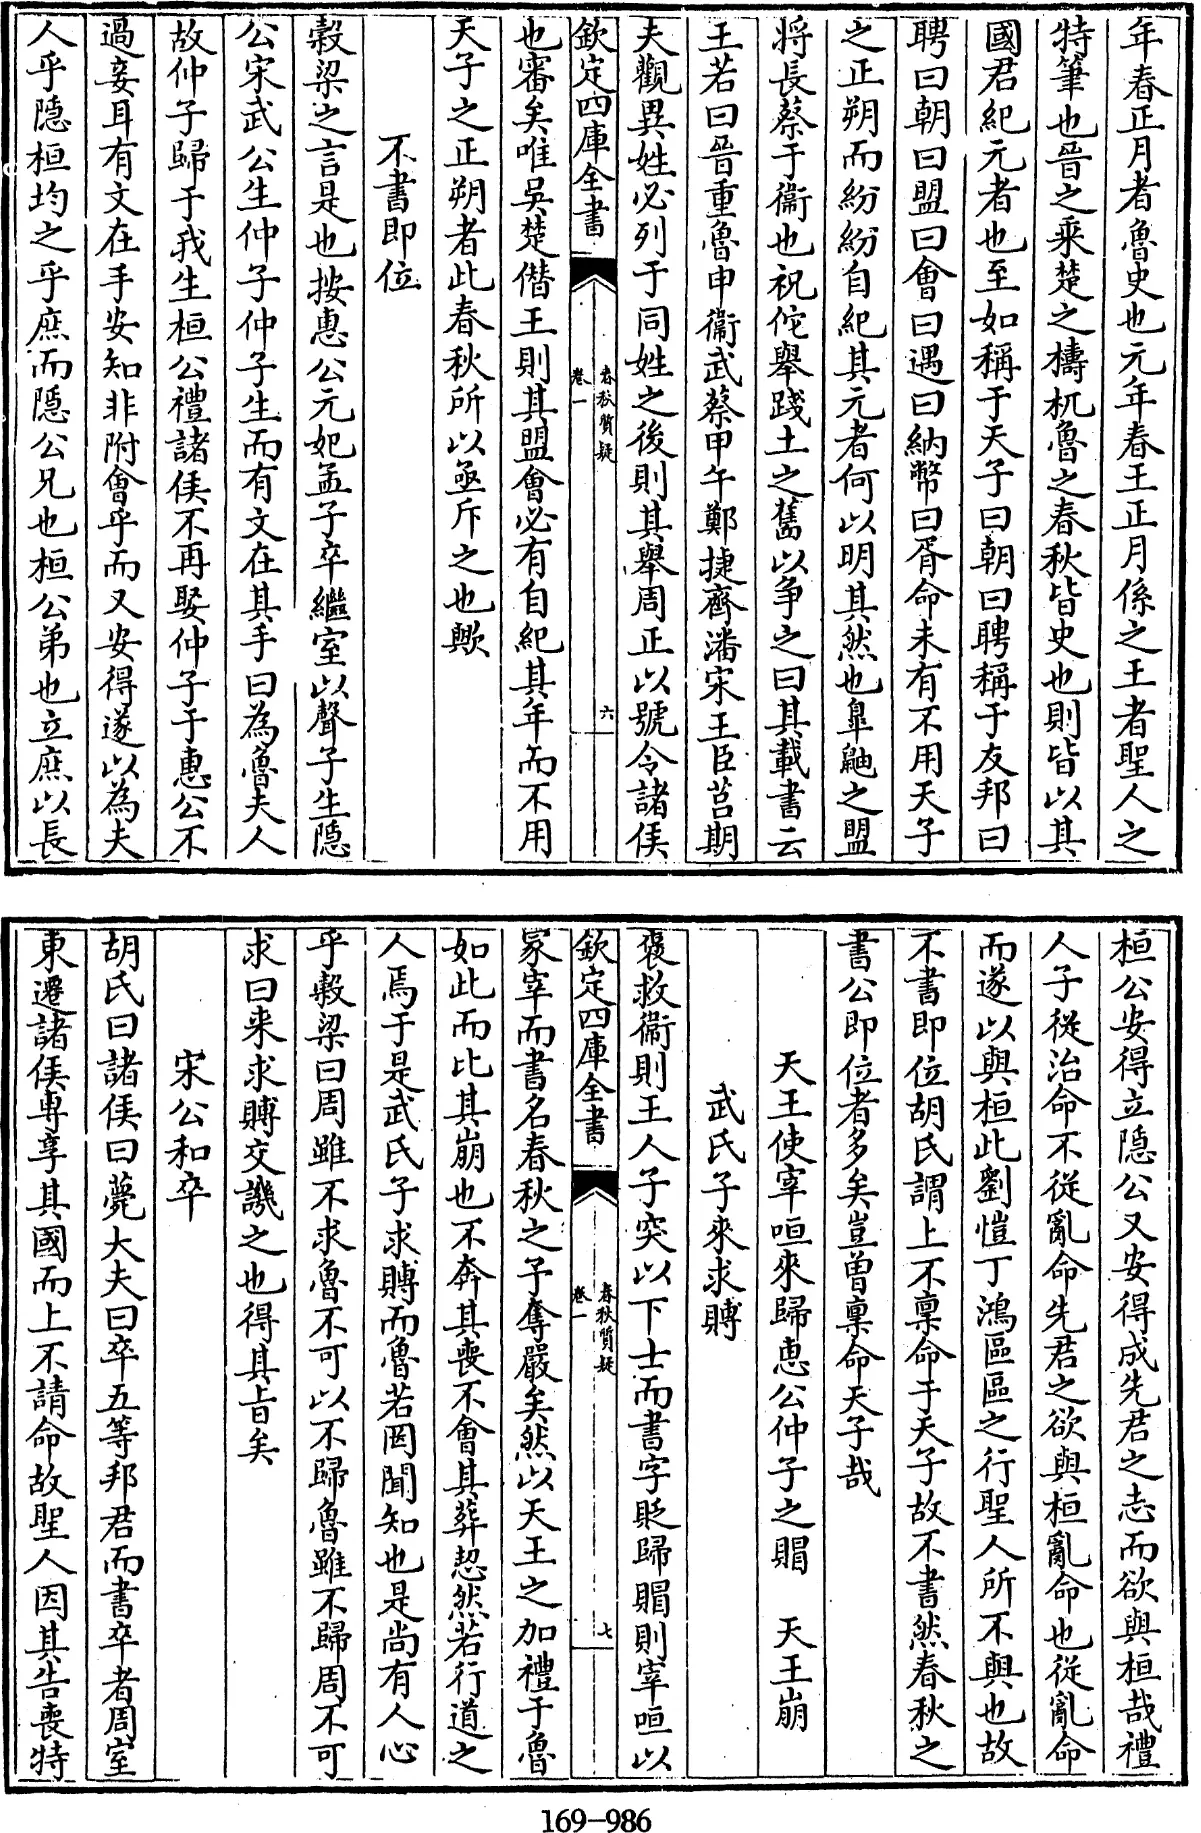 年春正月者魯史也元年春王正月係之王者聖人之
特筆也晉之乘楚之檮杌魯之春秋皆史也則皆以其
國君紀元者也至如稱于天子曰朝曰聘稱于友邦曰
聘曰朝曰盟曰會曰遇曰納幣曰胥命未有不用天子
之正朔而紛紛自紀其元者何以明其然也臯鼬之盟
將長蔡于衞也祝佗舉踐土之舊以争之曰其載書云
王若曰晉重魯申衞武蔡甲午鄭捷齊潘宋王臣莒期
夫觀異姓必列于同姓之後則其舉周正以號令諸侯
欽定四庫全書
春秋質疑
卷一
六
也審矣唯吳楚僭王則其盟會必有自紀其年而不用
天子之正朔者此春秋所以亟斥之也歟
不書即位
穀梁之言是也按惠公元妃孟子卒繼室以聲子生隱
公宋武公生仲子仲子生而有文在其手曰為魯夫人
故仲子歸于我生桓公禮諸侯不再娶仲子于惠公不
過妾耳有文在手安知非附會乎而又安得遂以為夫
人乎隱桓均之乎庶而隱公兄也桓公弟也立庶以長
桓公安得立隱公又安得成先君之志而欲與桓哉禮
人子從治命不從亂命先君之欲與桓亂命也從亂命
而遂以與桓此劉愷丁鴻區區之行聖人所不與也故
不書即位胡氏謂上不稟命于天子故不書然春秋之
書公即位者多矣豈曽稟命天子哉
天王使宰咺來歸惠公仲子之賵　天王崩
武氏子來求賻
褒救衞則王人子突以下士而書字貶歸賵則宰咺以
欽定四庫全書
春秋質疑
卷一
七
冢宰而書名春秋之予奪嚴矣然以天王之加禮于魯
如此而比其崩也不奔其喪不會其葬恝然若行道之
人焉于是武氏子求賻而魯若罔聞知也是尚有人心
乎穀梁曰周雖不求魯不可以不歸魯雖不歸周不可
求曰来求賻交譏之也得其㫖矣
宋公和卒
胡氏曰諸侯曰薨大夫曰卒五等邦君而書卒者周室
東遷諸侯専享其國而上不請命故聖人因其告喪特
169-986